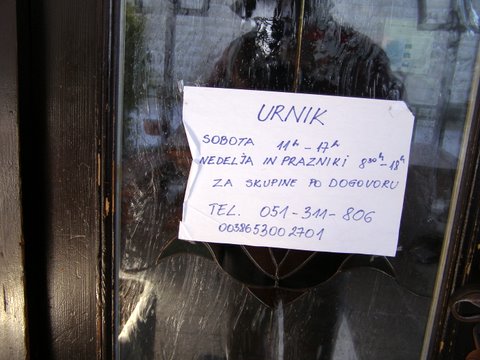 URNIK
SOBOTA 11h - 17h
NEDELJA IN PRAZNIKI 830h-18h
ZA SKUPINE PO DOGOVORU
TEL. 051-311-806
0038653002701